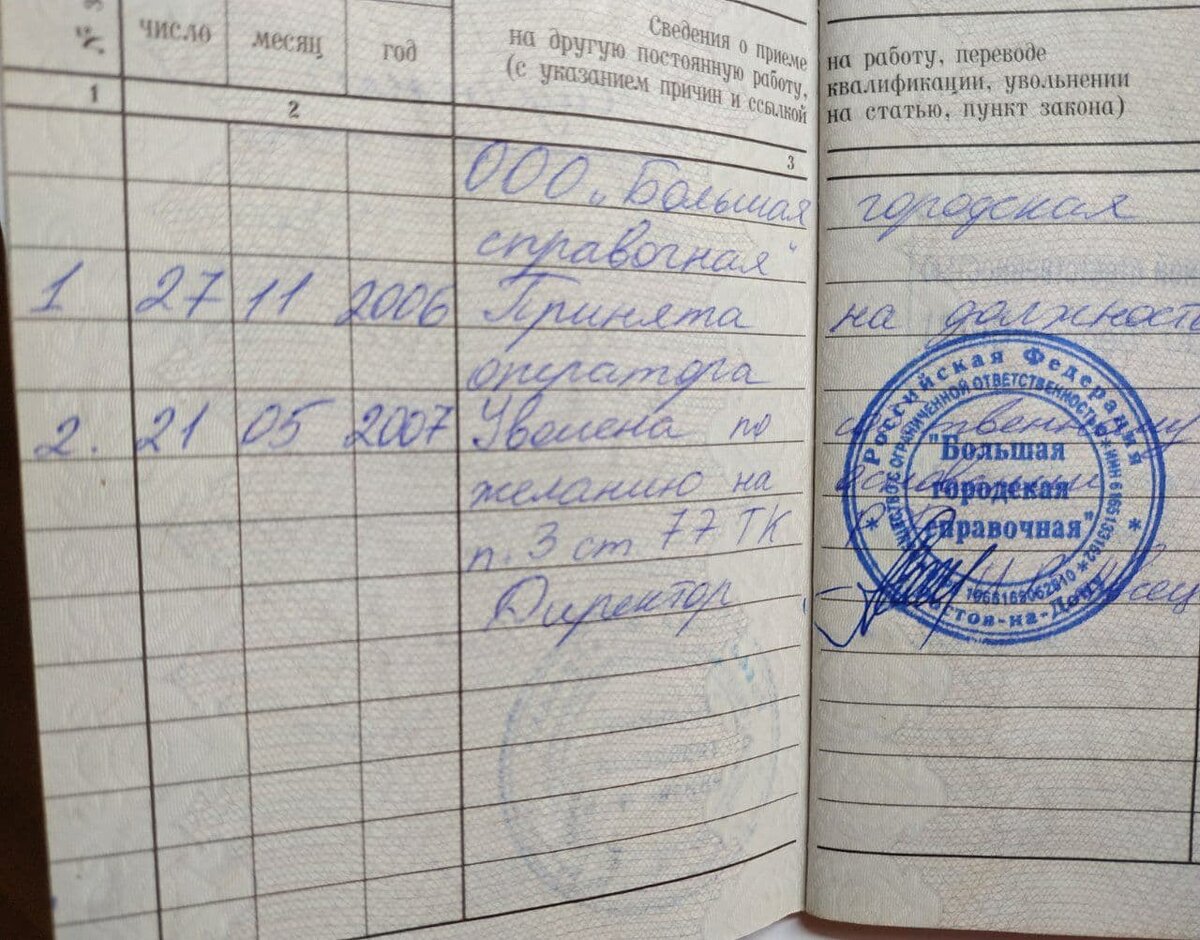 число месяц год
Сведения о приеме на работу, переводе
на другую постоянную работу, квалификации, увольнении
(с указанием причин и ссылкой на статью, пункт закона)
1 2 3
ООО "Большая городская
справочная"
1 27 11 2006 Принята на должность
оператора
2. 21 05 2007 Уволена по собственному
желанию на основании
п. 3 ст 77 ТК
Директор
Российская Федерация
ОБЩЕСТВО С ОГРАНИЧЕННОЙ ОТВЕТСТВЕННОСТЬЮ * ИНН 6165133162 *
"Большая
городская
справочная"
Ростов-на-Дону